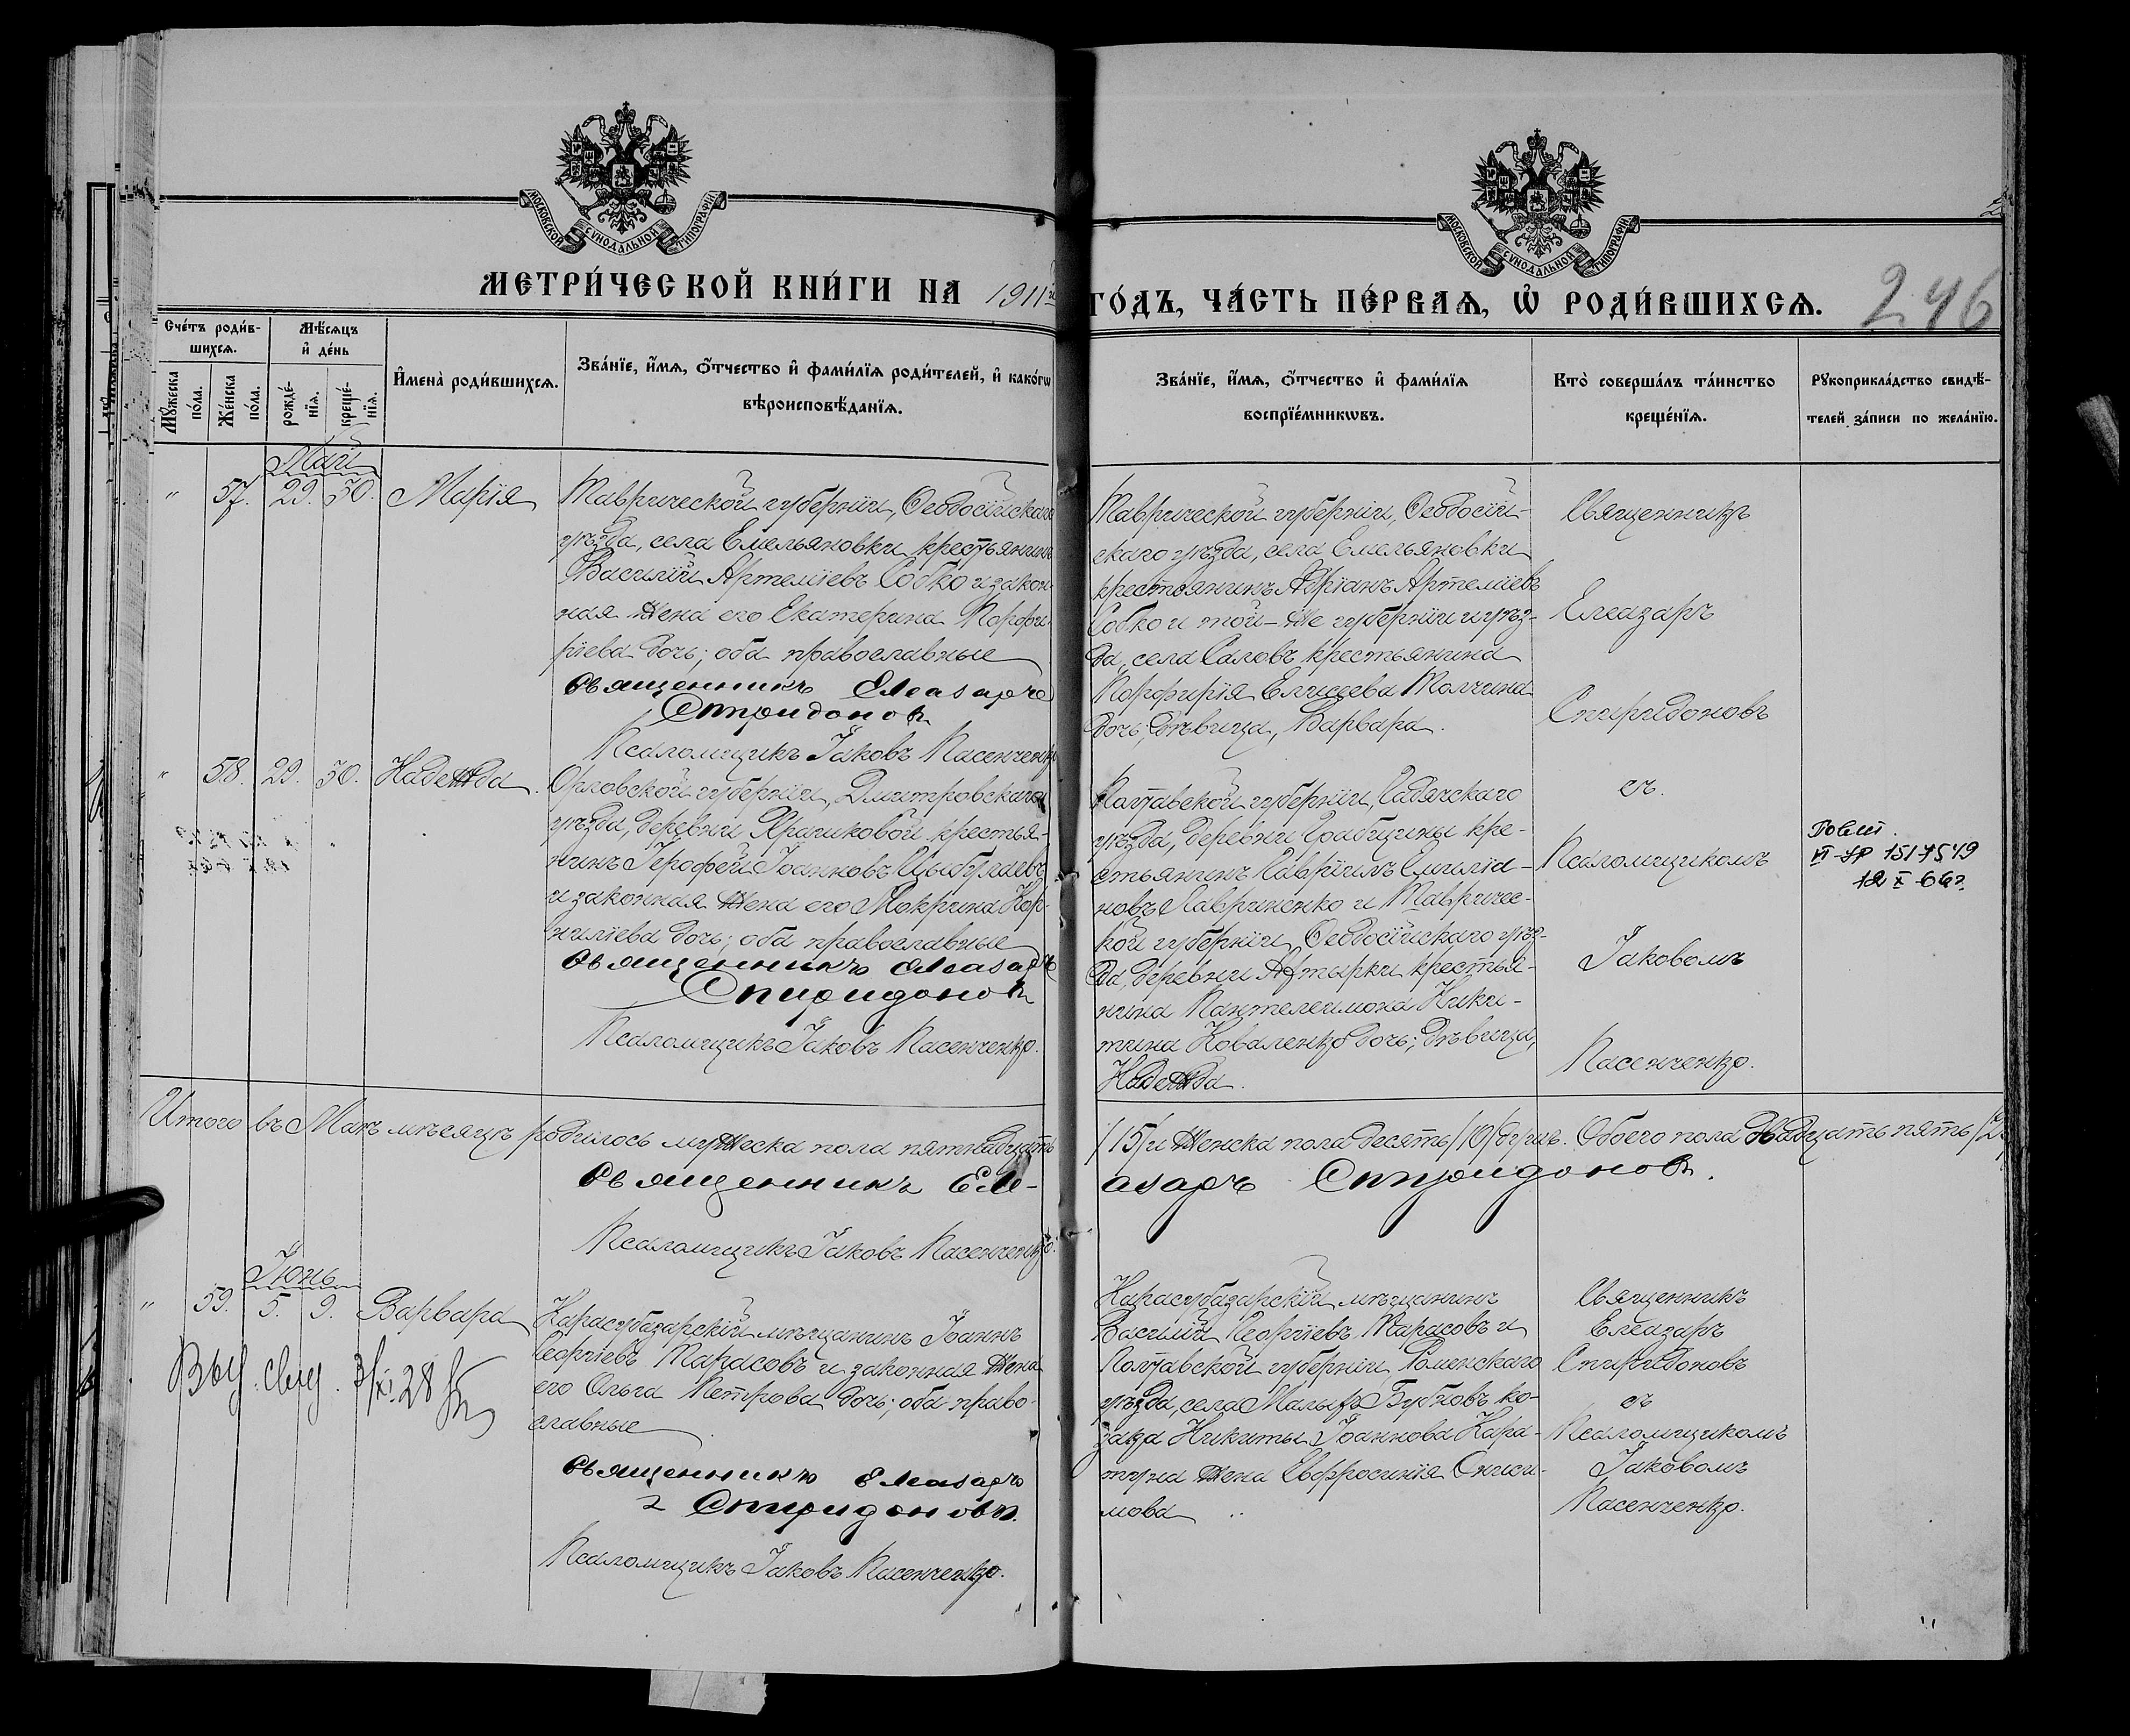 МОСКОВСКОЙ СѴНОДАЛЬНОЙ ТИПОГРАФІИ
МОСКОВСКОЙ СѴНОДАЛЬНОЙ ТИПОГРАФІИ
МЕТРИ́ЧЕСКОЙ КНИ́ГИ НА 1911й
ГО́ДЪ, ЧА́СТЬ ПЕ́РВАѦ, Ѡ҆ РОДИ́ВШИХСѦ.
246
Сче́тъ роди́в-
шихсѧ.
Мꙋ́жеска по́ла.
Же́нска по́ла.
Мѣ́сѧцъ
и҆ де́нь
рожде́-
нїѧ.
креще́-
нїѧ.
И҆мена̀ роди́вшихсѧ.
Зва́нїе, и҆́мѧ, ѻ҆́тчество и҆ фами́лїѧ роди́телей, и҆ како́гѡ
вѣроисповѣ́данїѧ.
Зва́нїе, и҆́мѧ, ѻ҆́тчество и҆ фами́лїѧ
воспрїе́мникѡвъ.
Кто̀ соверша́лъ та́инство
креще́нїѧ.
Рꙋкоприкла́дство свидѣ́-
телей за́писи по жела́нїю.
Май
" 57. 29. 30. Марія
Таврической губерніи, Ѳеодосійскаго
уѣзда, села Емельяновки крестьянинъ
Василій Артеміевъ Собко и закон-
ная жена его Екатерина Порфи-
ріева дочь; оба православные
Священникъ Елеазаръ
Спиридоновъ
Псаломщикъ Іаковъ Пасенченко
Таврической губерніи, Ѳеодосій-
скаго уѣзда, села Емельяновки
крестьянинъ Адріанъ Артеміевъ
Собко и той-же губерніи и уѣз-
да, села Саловъ крестьянина
Порфирія Елисеева Толчина
дочь, дѣвица, Варвара.
Священникъ
Елеазаръ
Спиридоновъ
" 58. 29. 30. Надежда
Орловской губерніи, Дмитровскаго
уѣзда, деревни Хрычиковой крестья-
нинъ Іерофей Іоанновъ Цыбулаевъ
и законная жена его Мокрина Кор-
ниліева дочь; оба православные
Священникъ Елеазаръ
Спиридоновъ
Псаломщикъ Іаковъ Пасенченко.
Полтавской губерніи, Гадячскаго
уѣзда, деревни Грабщины кре-
стьянинъ Гавріилъ Емиліа-
новъ Лавриненко иТавриче-
кой губерніи, Ѳеодосійскаго уѣз-
да, деревни Ахтырки крестья-
нина Пантелеимона Ники-
тина Коваленко дочь; дѣвица,
Надежда.
съ
Псаломщикомъ
Іаковомъ
Пасенченко.
Повт.
VI-ЯР 1517549
12 X 66г.
Итого въ Маѣ мѣсяцѣ родилось мужеска пола пятнадцать
/15/ и женска пола десять /10/ душъ. Обоего пола двадцать пять
Священникъ Еле-
азаръ Спиридоновъ.
Псаломщикъ Іаковъ Пасенченко.
Іюнь
" 59. 5. 9. Варвара
Карасубазарскій мѣщанинъ Іоаннъ
Георгіевъ Тарасовъ и законная жена
его Ольга Петрова дочь; оба право-
славные
Священникъ Елеазаръ
Спиридоновъ.
Псаломщикъ Іаковъ Пасенченко.
Карасубазарскій мѣщанинъ
Василій Георгіевъ Тарасовъ и
Полтавской губерніи, Роменскаго
уѣзда, села Малыхъ Бубновъ ко-
зака Никиты Іоаннова Кара-
туна жена Евфросинія Ониси-
мова
Священникъ
Елеазаръ
Спиридоновъ
съ
Псаломщикомъ
Іаковомъ
Пасенченко.
Выд. свид.